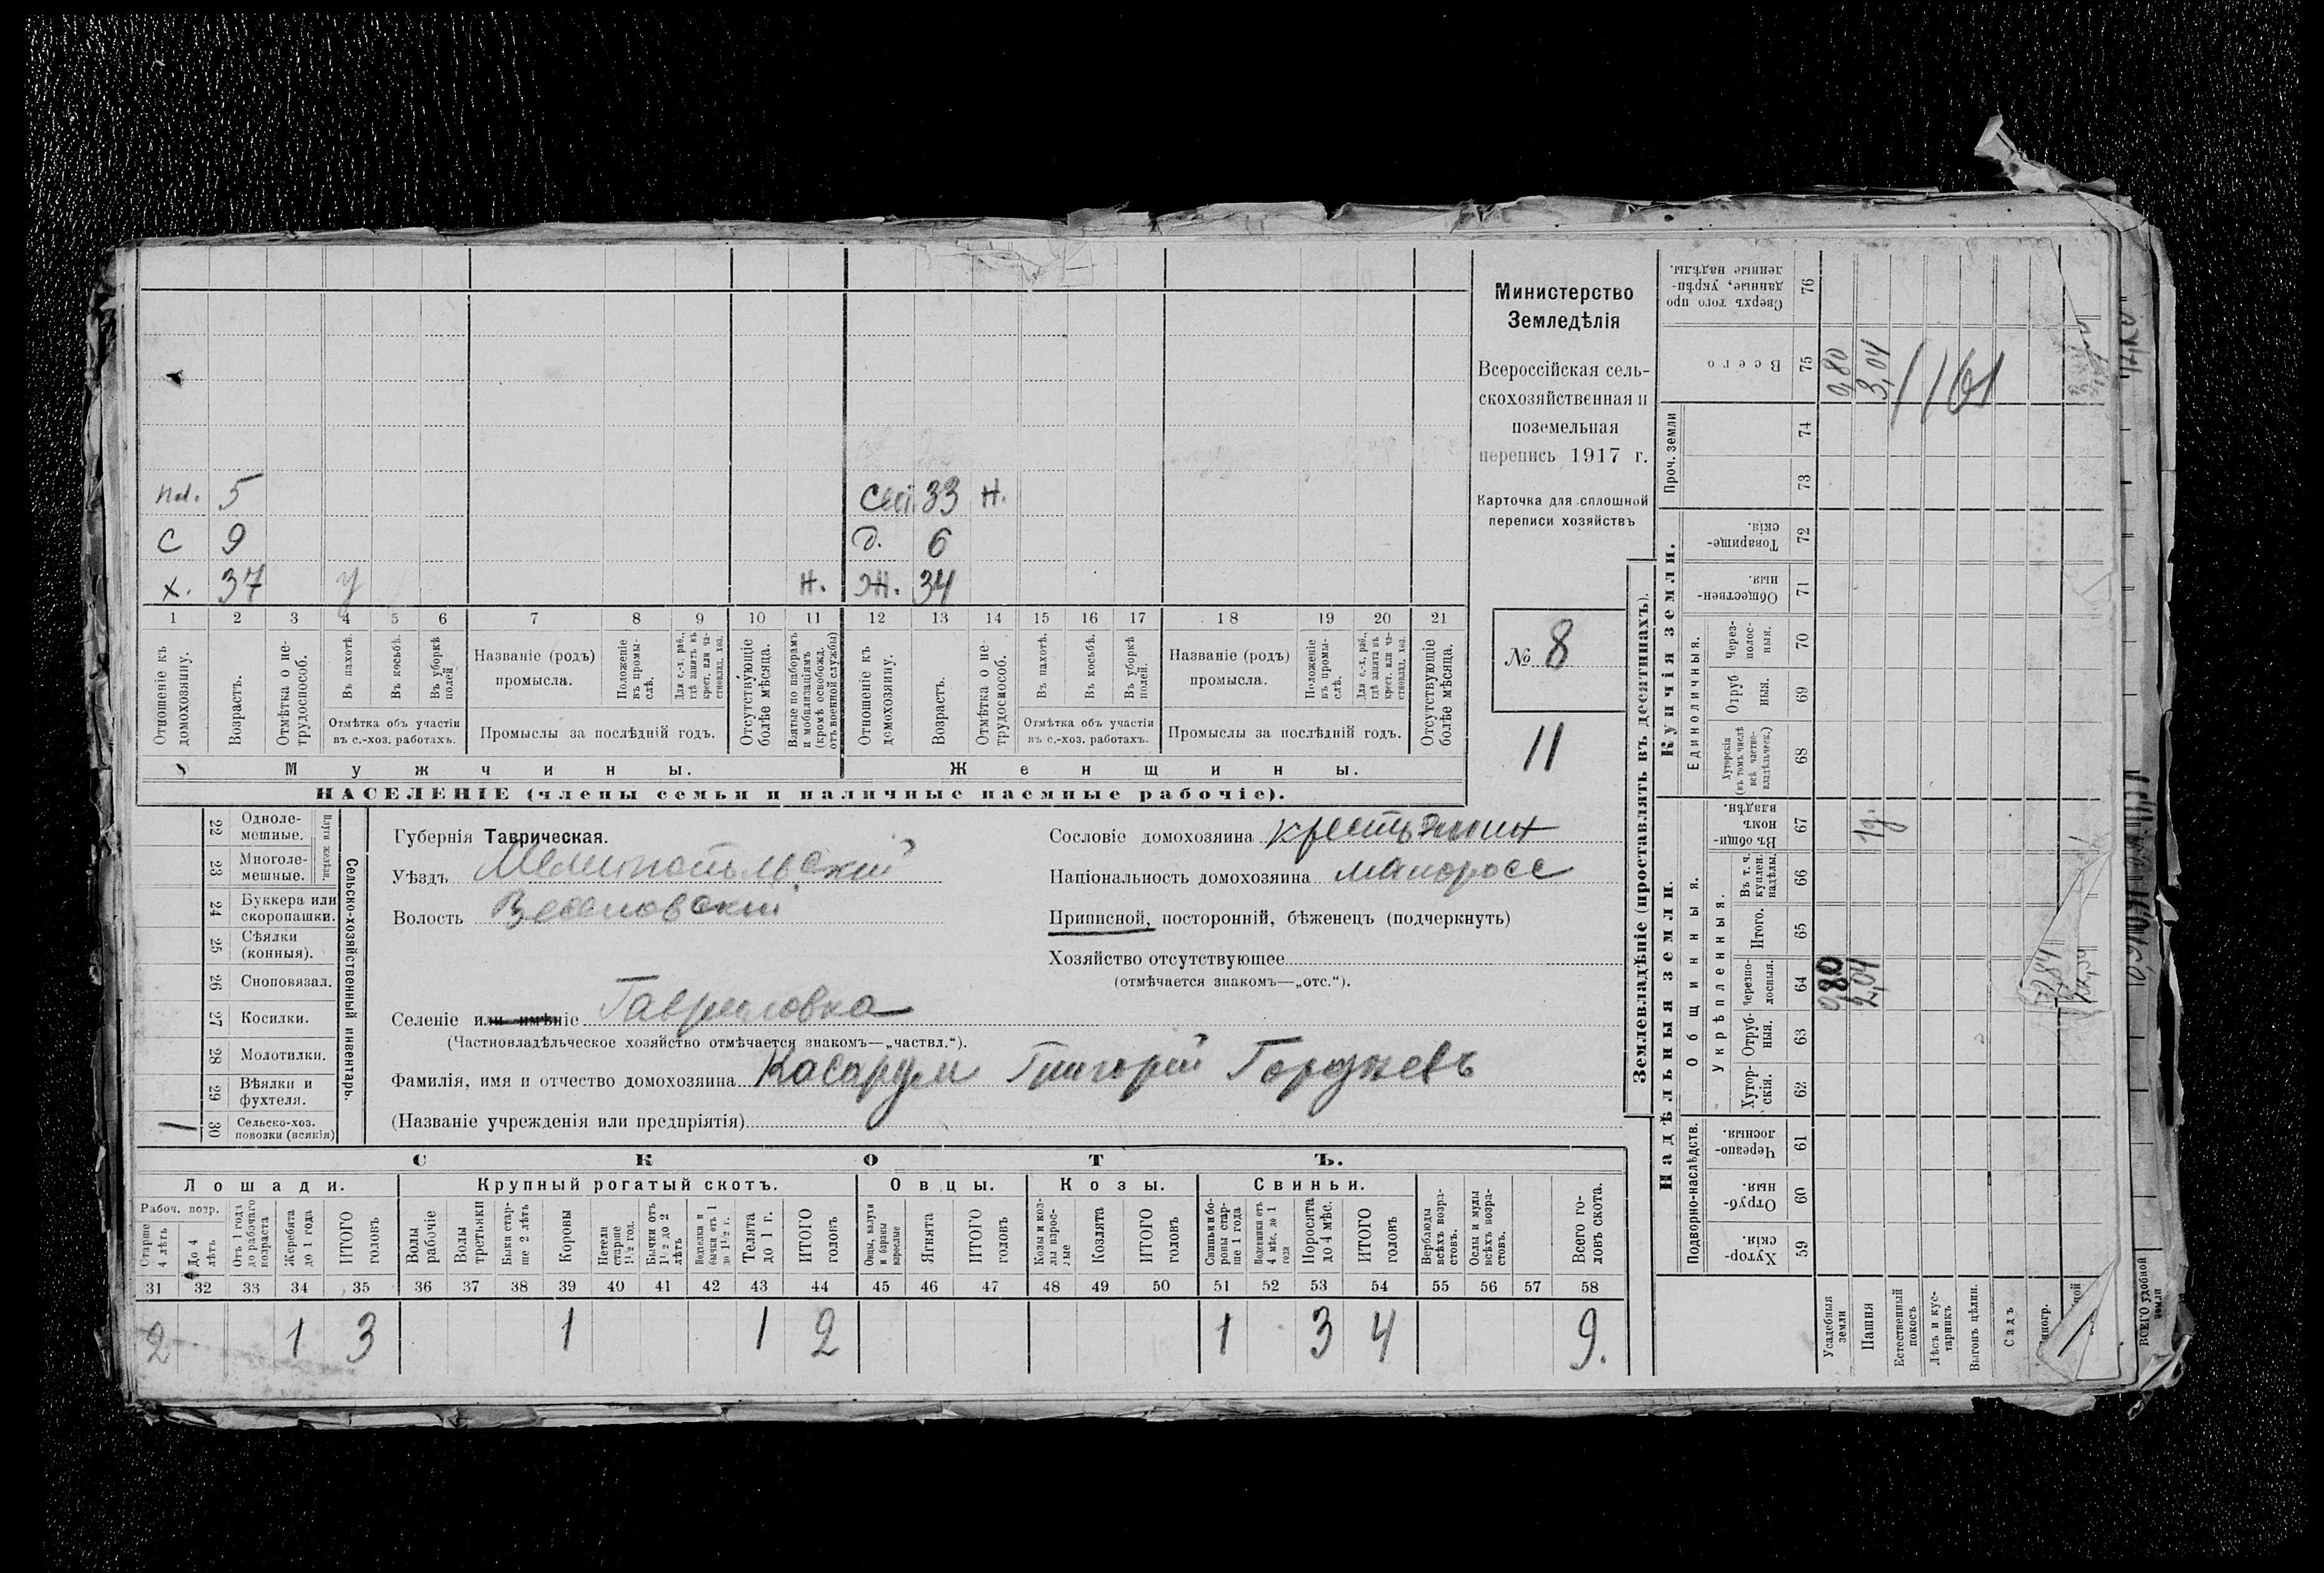 пл. 5
сест. 33 н.
с 9
д. 6
х. 37 у н. ж. 34
1 2 3 4 5 6 7 8 9 10 11 12 13 14 15 16 17 18 19 20 21
Отношеніе къ домохозяину.
Возрастъ.
Отмѣтка о нетрудоспособ.
Въ пахотѣ.
Въ косьбѣ.
Въ уборкѣ полей
Отмѣтка объ участіи
въ с.-хоз. работахъ.
Названіе (родъ)
промысла.
Положеніе въ промыслѣ.
Для с.-х. раб., гдѣ занятъ въ крест. или частновлад. хоз.
Промыслы за послѣдній годъ.
Отсутствующіе болѣе мѣсяца.
Взятые по наборамъ и мобилизаціямъ (кромѣ освобожд. отъ военной службы)
Отношеніе къ домохозяину.
Возрастъ.
Отмѣтка о не трудоспособ.
Въ пахотѣ.
Въ косьбѣ.
Въ уборкѣ полей.
Отмѣтка объ участіи
въ с.-хоз. работахъ.
Названіе (родъ)
промысла.
Положеніе въ промыслѣ.
Для с.-х. раб., гдѣ занятъ въ крест. или частновлад. хоз.
Промыслы за послѣдній годъ.
Отсутствующіе болѣе мѣсяца.
Мужчины.
Женщины.
НАСЕЛЕНІЕ (члены семьи и наличные наемные рабочіе).
Министерство
Земледѣлія
Всероссійская сель-
скохозяйственная и
поземельная
перепись 1917 г.
Карточка для сплошной
переписи хозяйствъ
№ 8
11
Сельско-хозяйственный инвентарь.
Плуги желѣзн.
22 Однолемешные.
23 Многолемешные.
24 Буккера или скоропашки.
25 Сѣялки (конныя).
26 Сноповязал.
27 Косилки.
28 Молотилки.
29 Вѣялки и фухтеля.
1 30 Сельско-хоз. повозки (всякія)
Губернія Таврическая.
Уѣздъ Мелитопольскій
Волость Веселовскій
Селеніе или имѣніе Гавриловка
(Частновладѣльческое хозяйство отмѣчается знакомъ—„частвл.“).
Фамилія, имя и отчество домохозяина Касарум Григорій Гордѣевъ
(Названіе учрежденія или предпріятія)
Сословіе домохозяина крестьянин
Національность домохозяина малоросс
Приписной, посторонній, бѣженецъ (подчеркнуть)
Хозяйство отсутствующее
(отмѣчается знакомъ—„отс.“).
СКОТЪ.
Лошади.
Крупный рогатый скотъ.
Овцы.
Козы.
Свиньи.
Рабоч. возр.
Старше 4 лѣтъ
До 4 лѣтъ
Отъ 1 года до рабочаго возраста
Жеребята до 1 года
ИТОГО головъ
Волы рабочіе
Волы третьяки
Быки старше 2 лѣтъ
Коровы
Нетели старше 1½ год.
Бычки отъ 1½ до 2 лѣтъ
Телята до 1 г.
ИТОГО головъ
Овцы, валухи и бараны взрослые
Ягнята
ИТОГО головъ
Козы и козлы взрослые
Козлята
ИТОГО головъ
Свиньи боровы старше 1 года
Подсвинки отъ 4 мѣс. до 1 года
Поросята до 4 мѣс.
ИТОГО головъ
Верблюды всѣхъ возрастовъ.
Ослы и мулы всѣхъ возрастовъ.
Всего головъ скота.
31 32 33 34 35 36 37 38 39 40 41 42 43 44 45 46 47 48 49 50 51 52 53 54 55 56 57 58
2 1 3 1 1 2 1 3 4 9.
Землевладѣніе (проставлять въ десятинахъ).
Надѣльныя земли.
Купчія земли.
Проч. земли
Подворно-наслѣдств.
Общинныя.
Укрѣпленныя.
Единоличныя.
Хуторскія. 59
Отрубныя. 60
Черезполосныя. 61
Хуторскія. 62
Отрубныя. 63
Черезполосныя. 64
Итого. 65
Въ т. ч. куплен. надѣлы. 66
Въ общинномъ владѣн. 67
Хуторскія (въ томъ числѣ всѣ частновладѣльческ.) 68
Отрубныя. 69
Черезполосныя. 70
Общественныя. 71
Товарищескія. 72
73
74
Всего 75
Сверхъ того проданные, укрѣпленные надѣлы. 76
Усадебныя земли 0,80 0,80
Пашня 2,04 1д. 3,04
Естественный покосъ
Лѣсъ и кустарникъ
Выгонъ цѣлин.
Садъ
ВСЕГО удобной земли